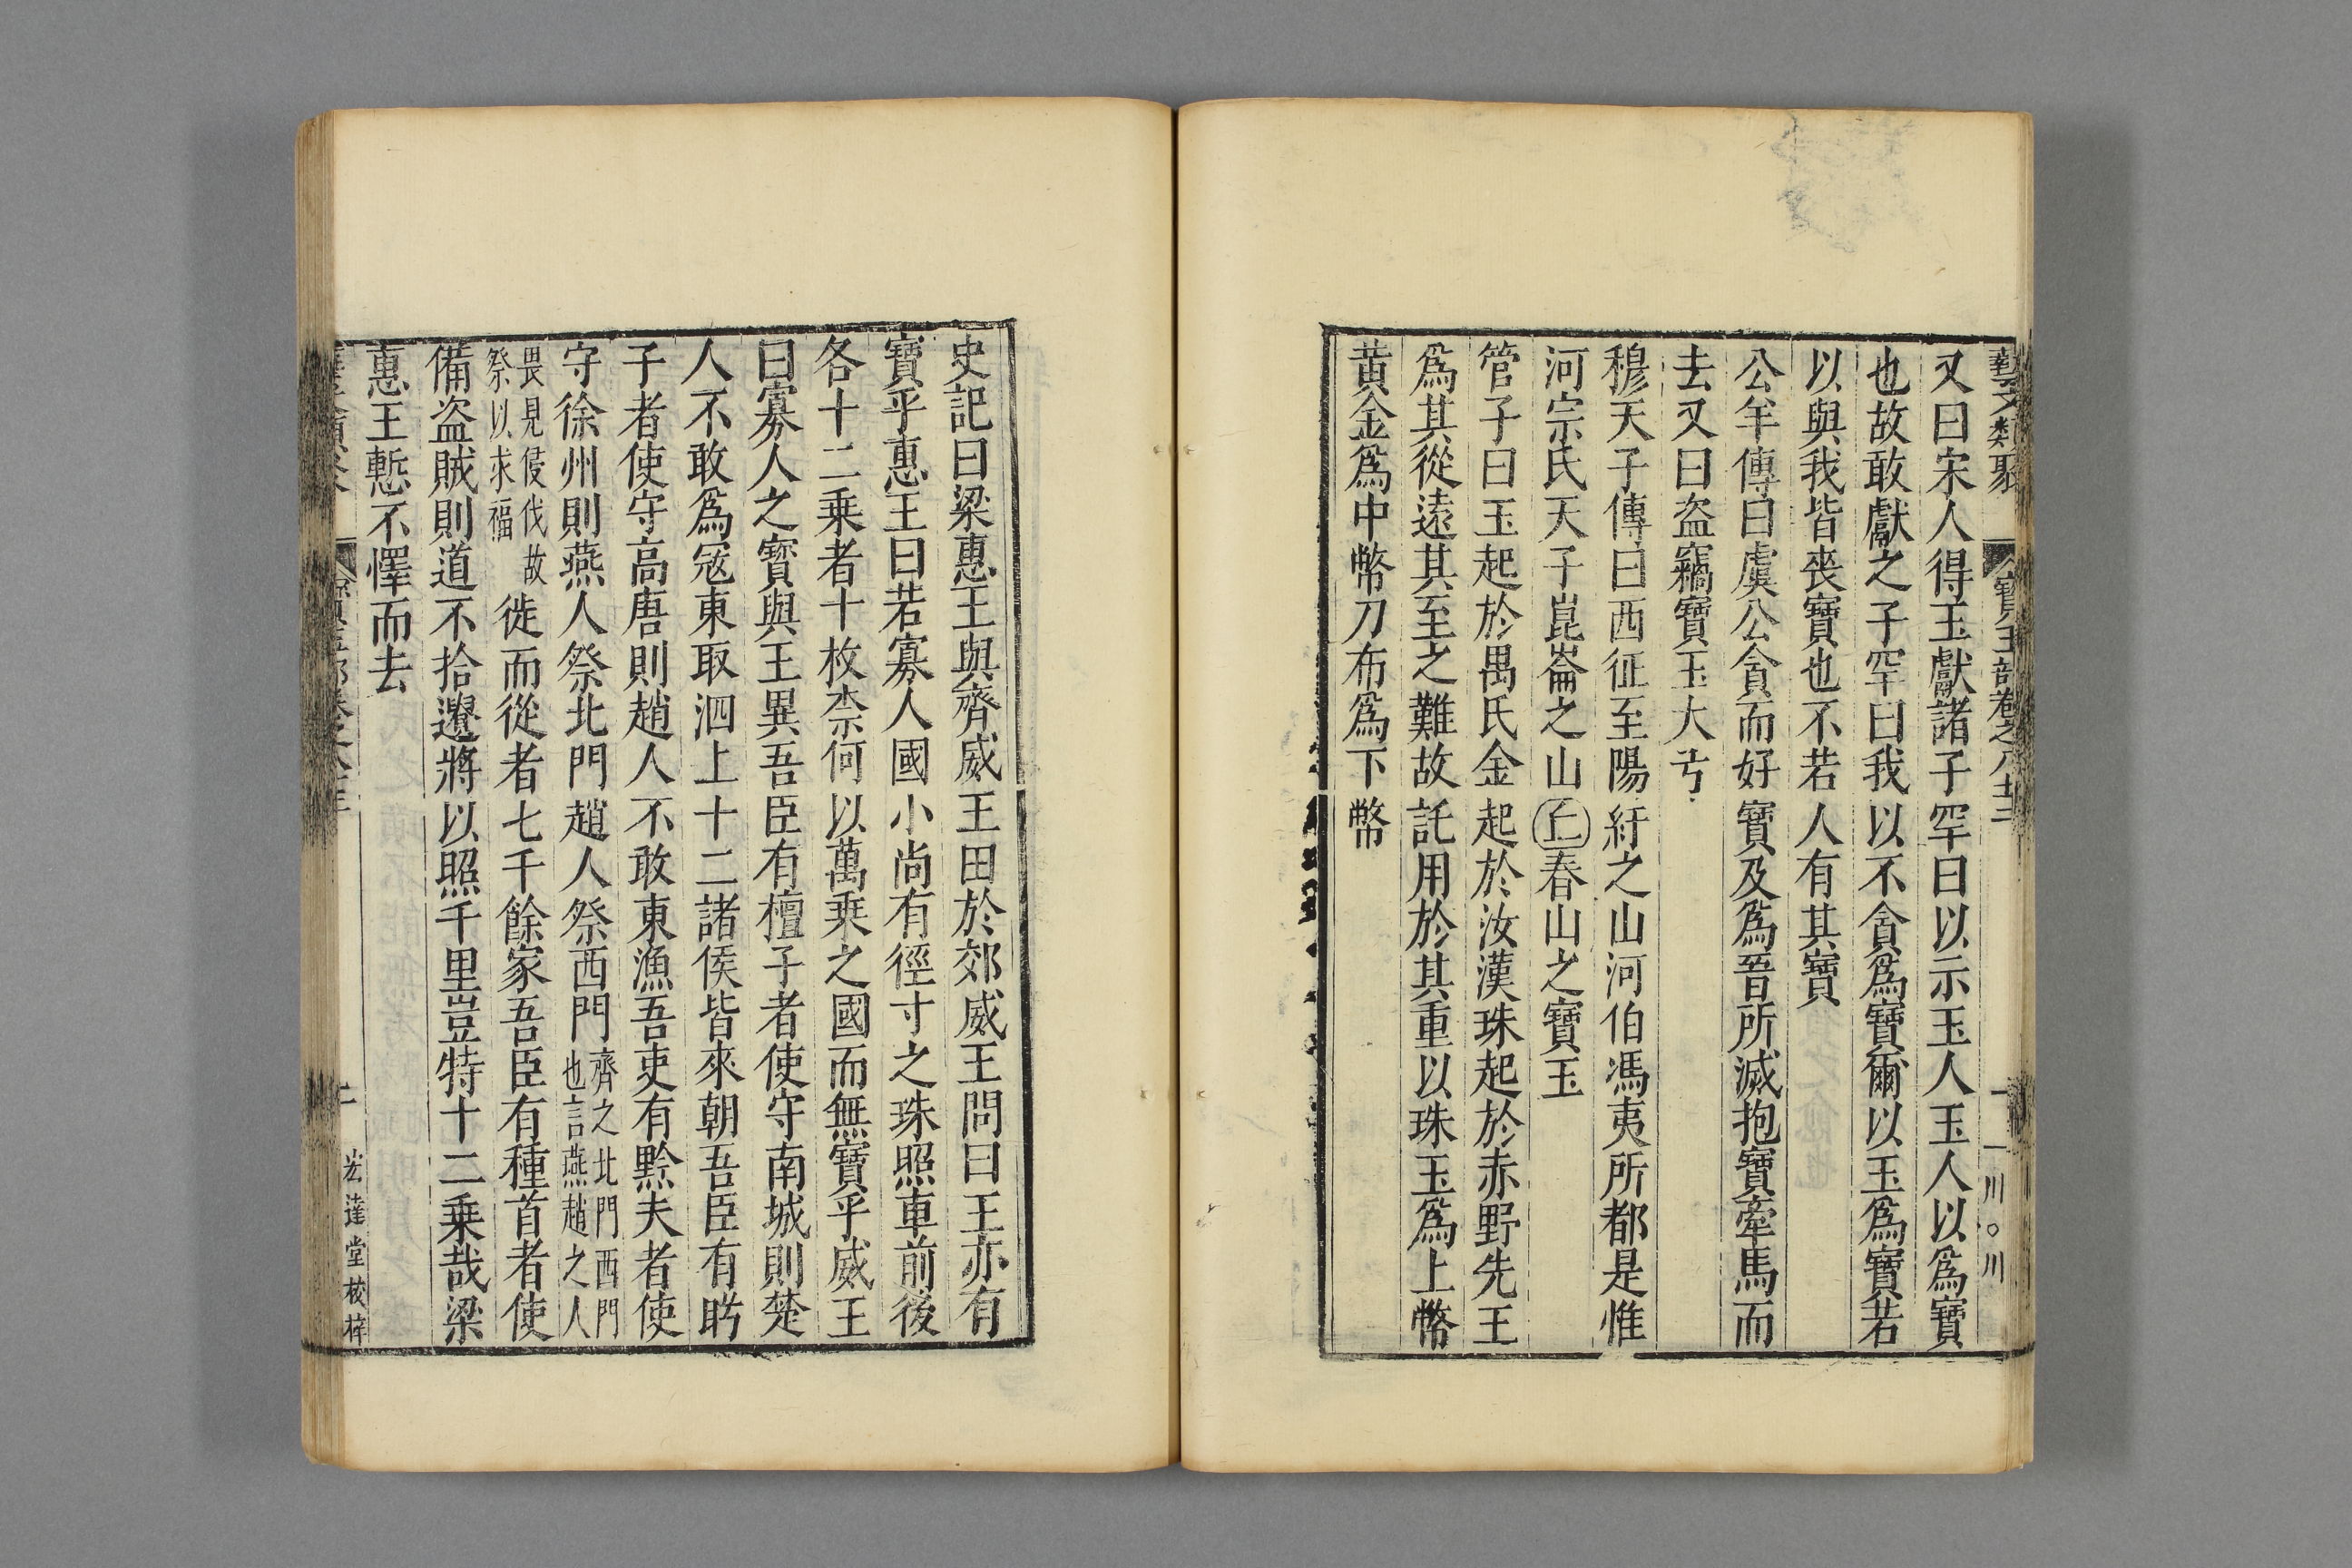 藝文類聚 寶玉部卷之八十三
又曰宋人得玉獻諸子罕曰以示玉人玉人以爲寶
也故敢獻之子罕曰我以不貪爲寶爾以玉爲寶若
以與我皆喪寶也不若人有其寶
公羊傳曰虞公貪而好寶及爲晉所滅抱寶牽馬而
去又曰盗竊寶玉大弓
穆天子傳曰西征至陽紆之山河伯馮夷所都是惟
河宗氏天子崑崙之山上春山之寶玉
管子曰玉起於禺氏金起於汝漢珠起於赤野先王
爲其從遠其至之難故託用於其重以珠玉爲上幣
黄金爲中幣刀布爲下幣
史記曰梁惠王與齊威王田於郊威王問曰王亦有
寶乎惠王曰若寡人國小尚有徑寸之珠照車前後
各十二乗者十枚柰何以萬乗之國而無寶乎威王
曰寡人之寳與王異吾臣有檀子者使守南城則楚
人不敢爲冦東取泗上十二諸侯皆來朝吾臣有盻
子者使守高唐則趙人不敢東漁吾吏有黔夫者使
守徐州則燕人祭北門趙人祭西門齊之北門西門
也言燕趙之人
畏見侵伐故
祭以求福徙而從者七千餘家吾臣有種首者使
備盗賊則道不拾遺將以照千里豈特十二乗哉梁
惠王慙不懌而去
宏達堂校梓